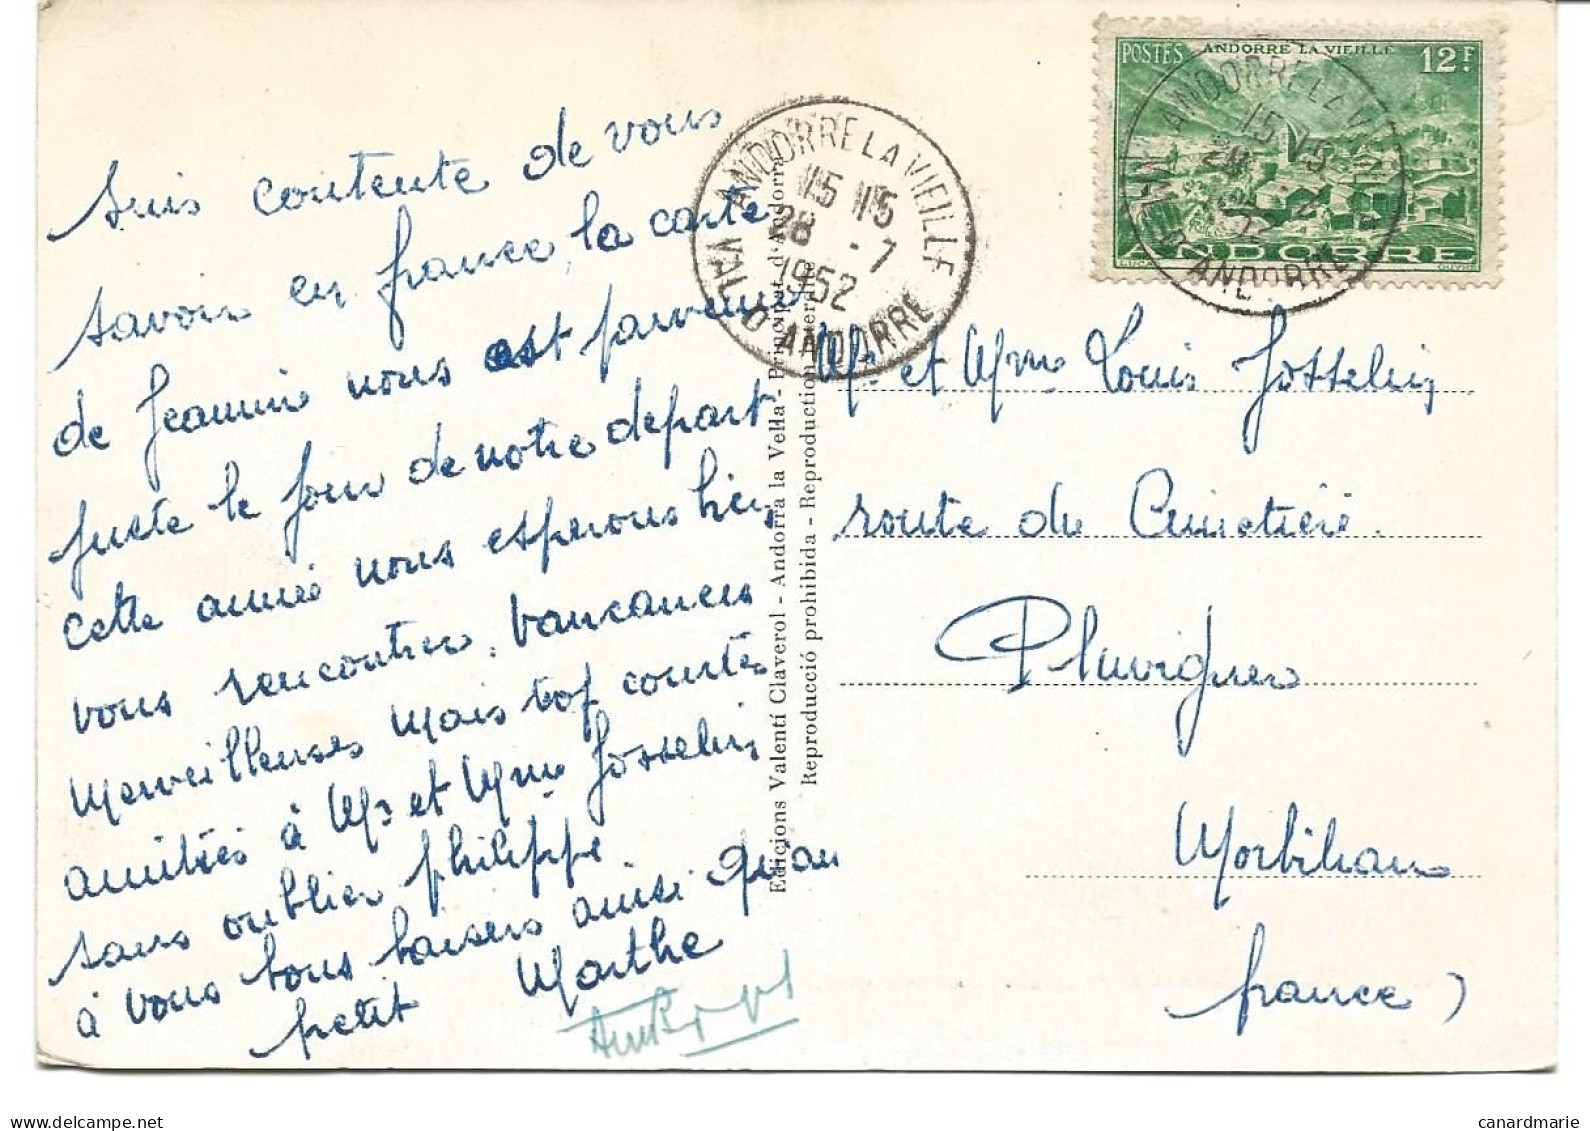 suis contente de vous
savoir en france, la carte
de Jeannine nous est parvenue
juste le jour de notre depart
cette année nous esperons bien
vous rencontrer. vancances
merveilleuses mais trop courtes
amitiés à Mr et Mme Josselin
sans oublier philippe.
à vous tous baisers ainsi qu'au
petit Marthe
Edicions Valentí Claverol - Andorra la Vella - Principat d'Andorra
Reproducció prohibida - Reproduction interdite
ANDORRE LA VIEILLE
15 15
28 - 7
1952
VAL D'ANDORRE
POSTES ANDORRE LA VIEILLE 12F.
ANDORRE
ANDORRE LA VIEILLE
VAL D'ANDORRE
Mr et Mme Louis Josselin
route du Cimetière.
Pluvigner
Morbihan
france)
www.delcampe.net
canardmarie